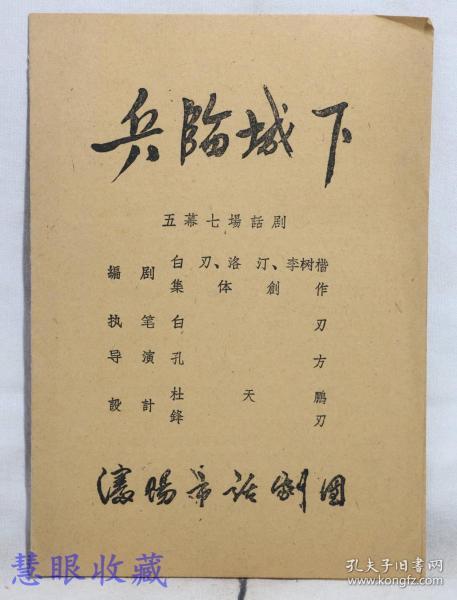 兵臨城下
五幕七場話剧
編剧 白刃、洛汀、李树楷
集体創作
执笔 白刃
导演 孔方
設計 杜天鵬
鋒刃
瀋陽市话劇团
慧眼收藏
孔夫子旧书网
www.kongfz.com